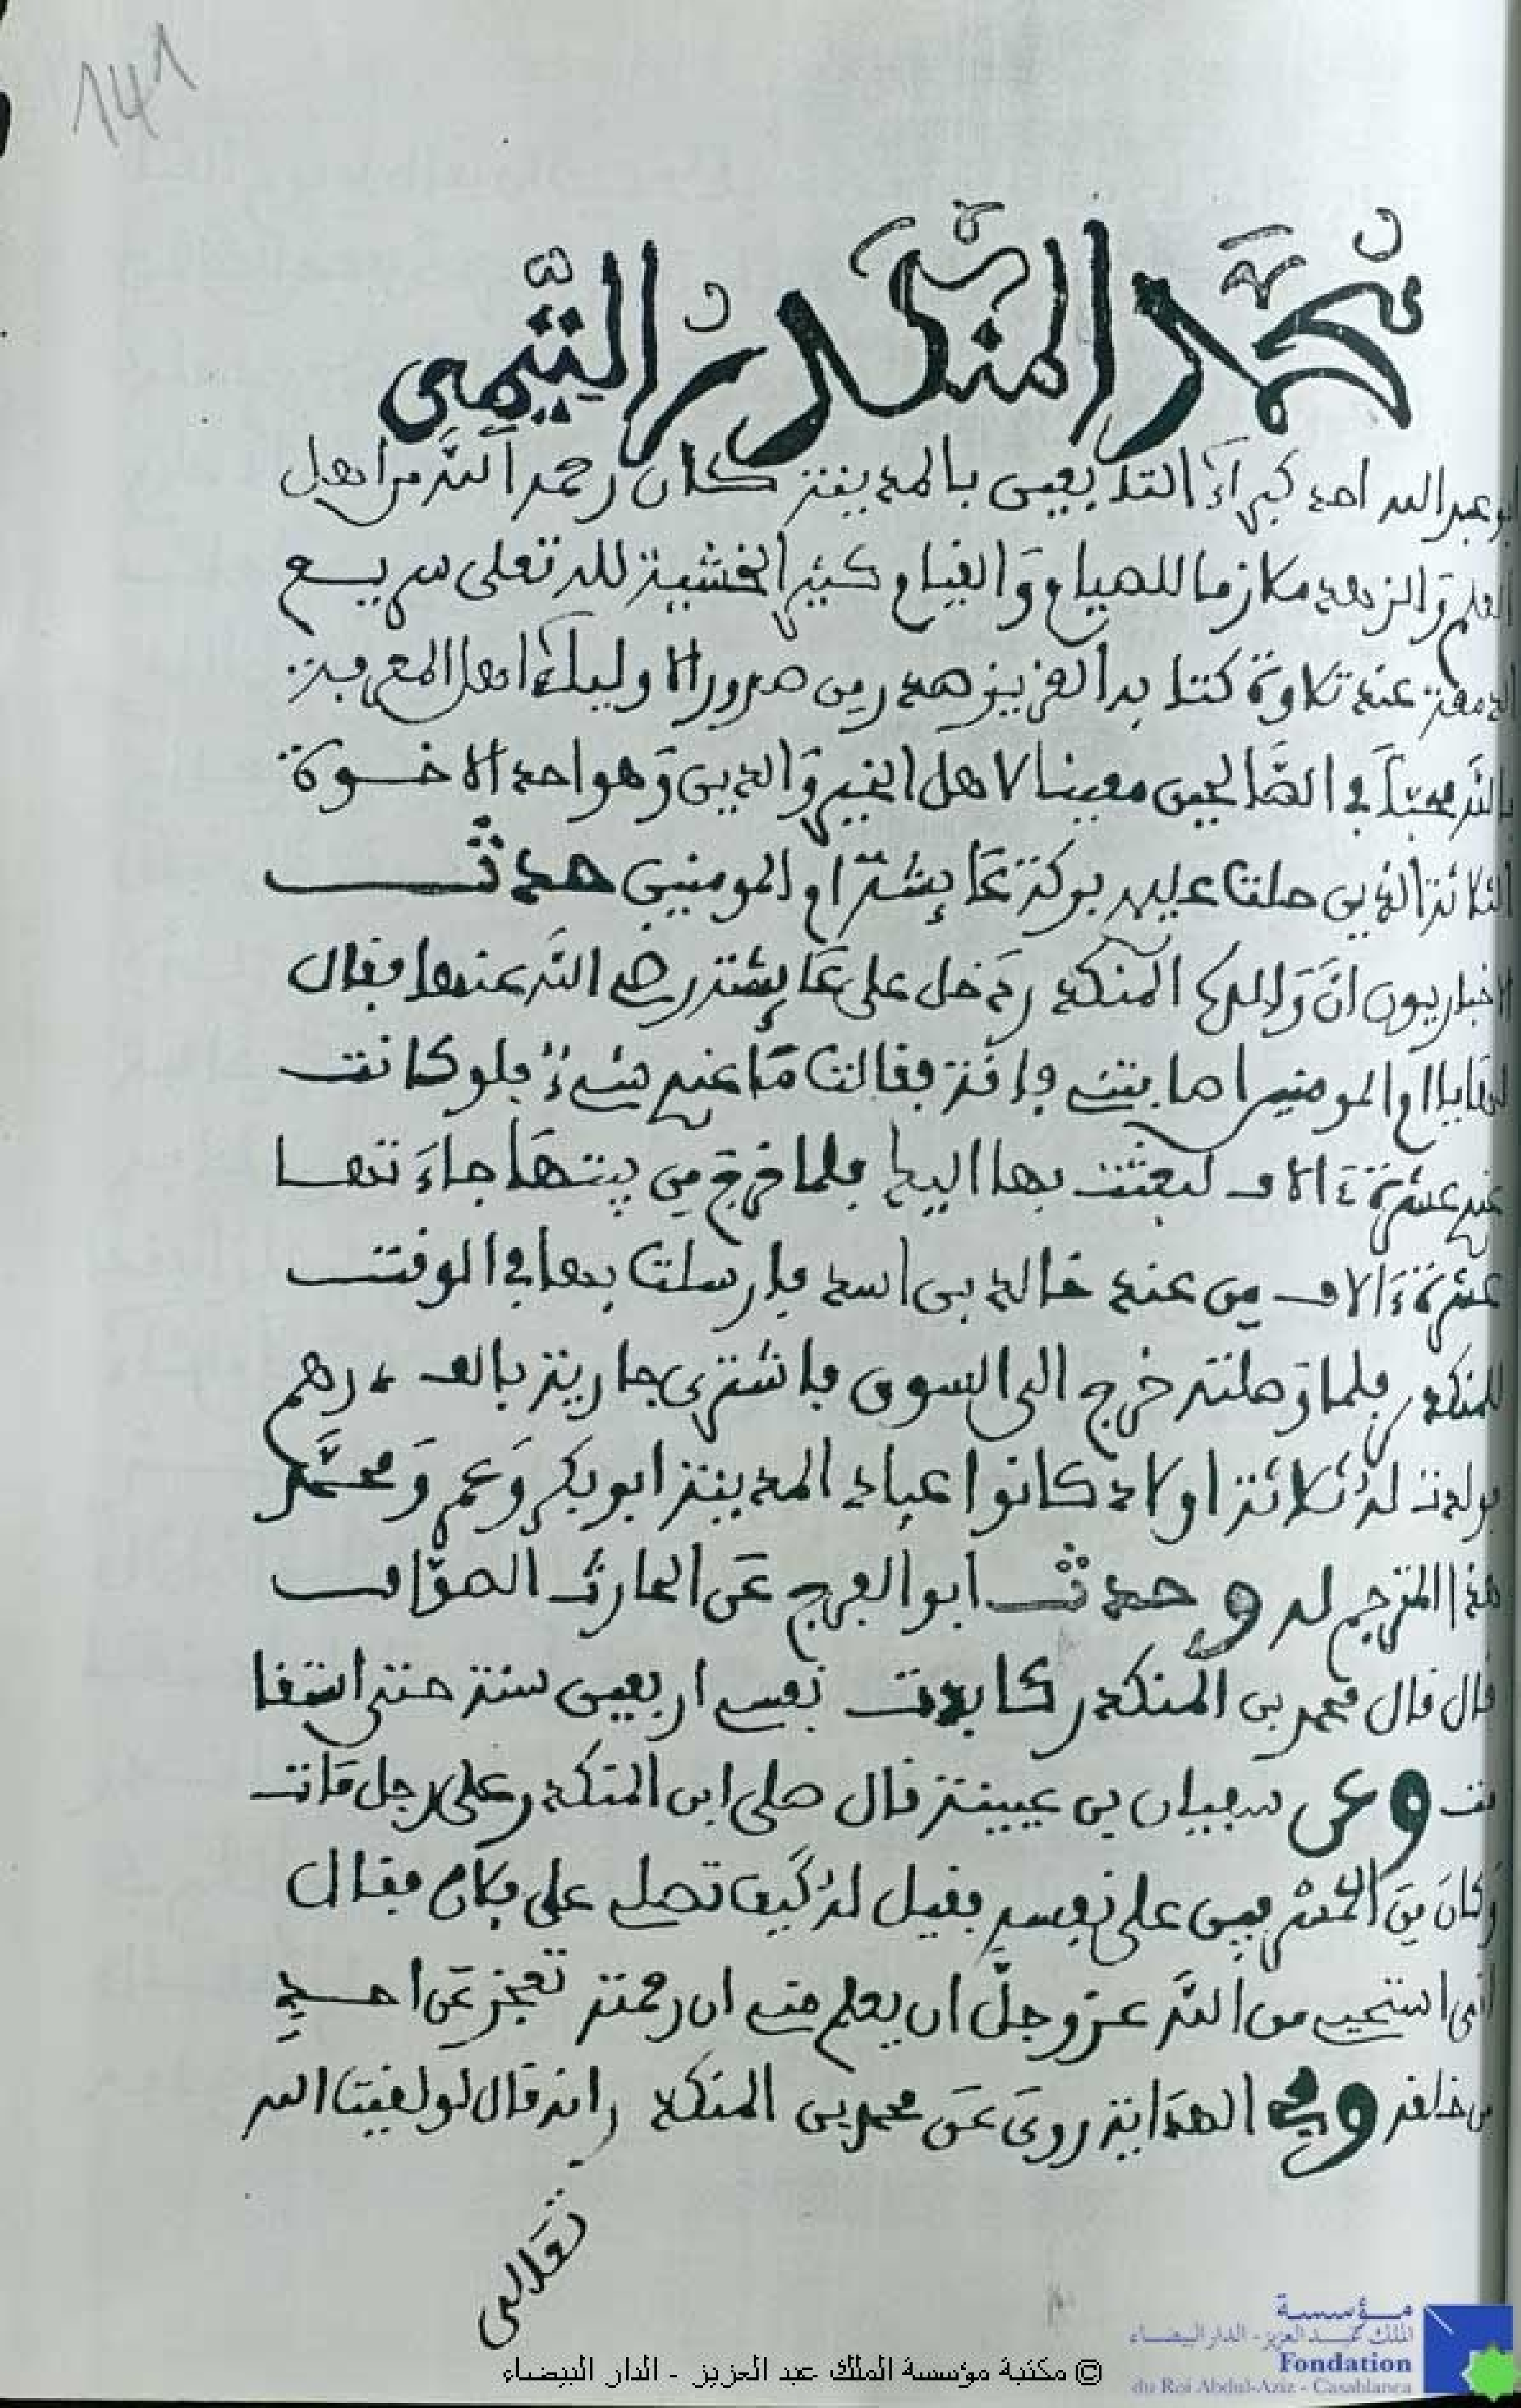 141
محمد المنكدر التيمي
ابو عبد الله احد كبراء التابعين بالمدينة كان رحمه الله من اهل
العلم والزهد ملازما للصيام والقيام كثير الخشية لله تعلى سريع
الدمعة عند تلاوة كتابه العزيز وهو من صدور الاولياء اهل المعرفة
بالله محبا في الصالحين معينا لاهل الخير والدين وهو احد الاخوة
الثلاثة الذين حلت عليهم بركة عائشة ام المومنين حدث
الاخباريون ان والده المنكدر دخل على عائشة رضي الله عنها فقال
لها يا ام المومنين اصابتني فاقة فقالت ما عندي شيء فلو كانت
عندي عشرة ءالاف لبعثت بها اليك فلما خرج من بيتها جاءتها
عشرة ءالاف من عند خالد بن اسد فارسلت بها في الوقت
للمنكدر فلما وصلته خرج الى السوق فاشترى جارية بالف درهم
فولدت له ثلاثة اولاد كانوا عباد المدينة ابو بكر وعمر ومحمد
هذا المترجم له وحدث ابو الفرج عن الحارث الصواف
قال قال محمد بن المنكدر كابدت نفسي اربعين سنة حتى استقا
مت وعن سفيان بن عيينة قال صلى ابن المنكدر على رجل مات
وكان من المسرفين على نفسه فقيل له كيف تصلي على فلان فقال
اني استحيي من الله عز وجل ان يعلم مني ان رحمته تعجز عن احد
من خلقه وفي الهداية روي عن محمد بن المنكدر انه قال لو لقيت الله
تعالى
مؤسسة
الملك عبد العزيز - الدار البيضاء
Fondation
du Roi Abdul-Aziz - Casablanca
© مكتبة مؤسسة الملك عبد العزيز - الدار البيضاء